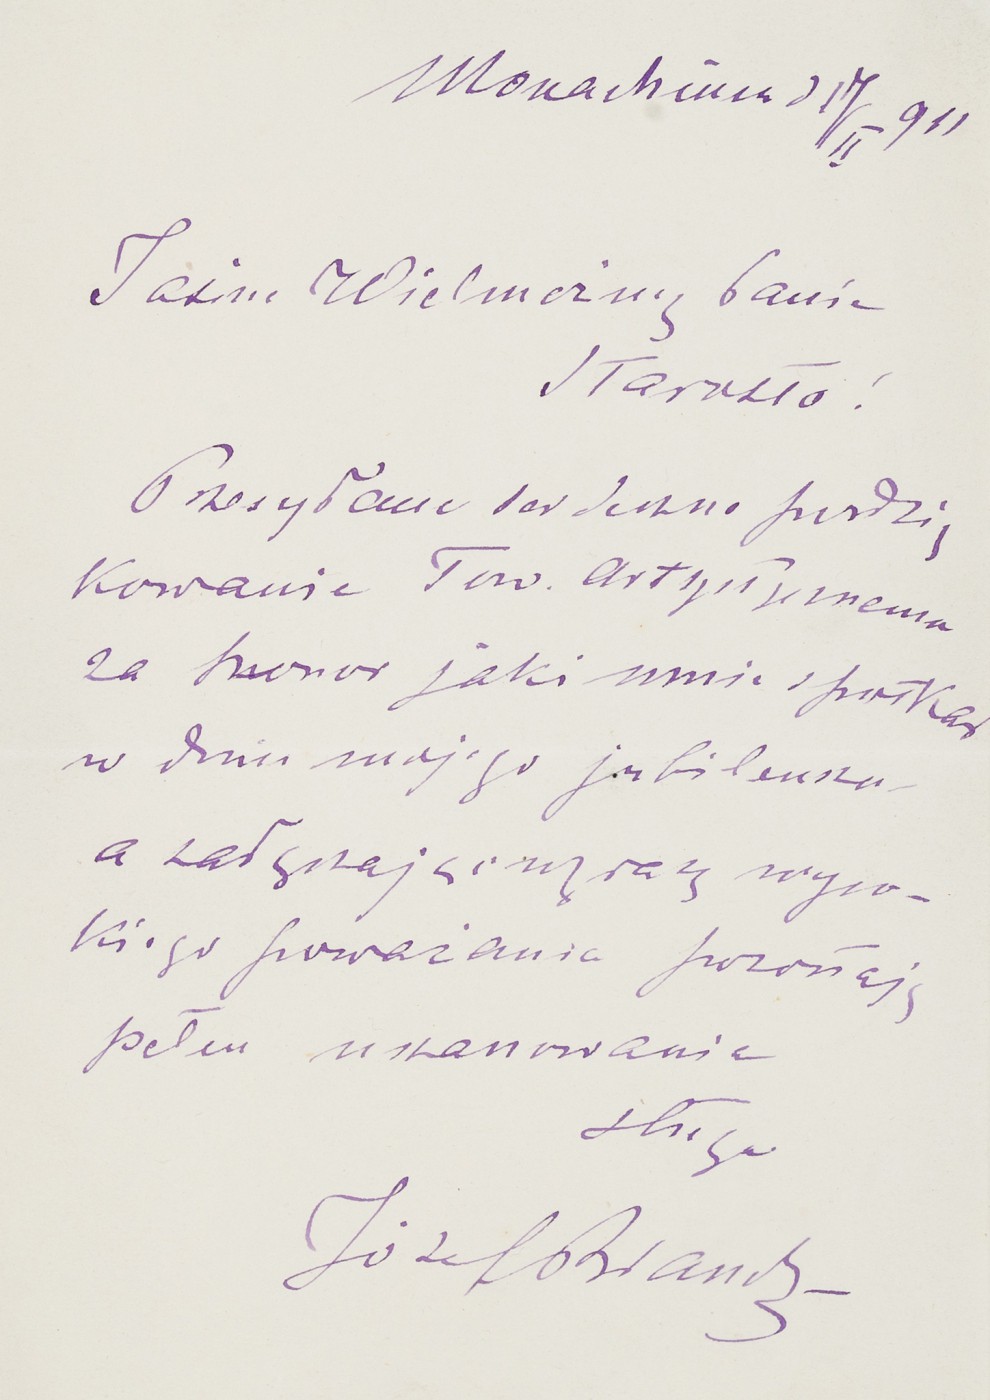 Monachium d 17/II 911
Jaśnie Wielmożny Panie
Starosto!
Przesyłam serdeczne podzię
kowanie Tow. Artystycznemu
za honor jaki mnie spotkał
w dniu mojego jubileuszu
a załączając wyrazy wyso-
kiego poważania pozostaję
pełen uszanowania
sługa
Józef Brandt